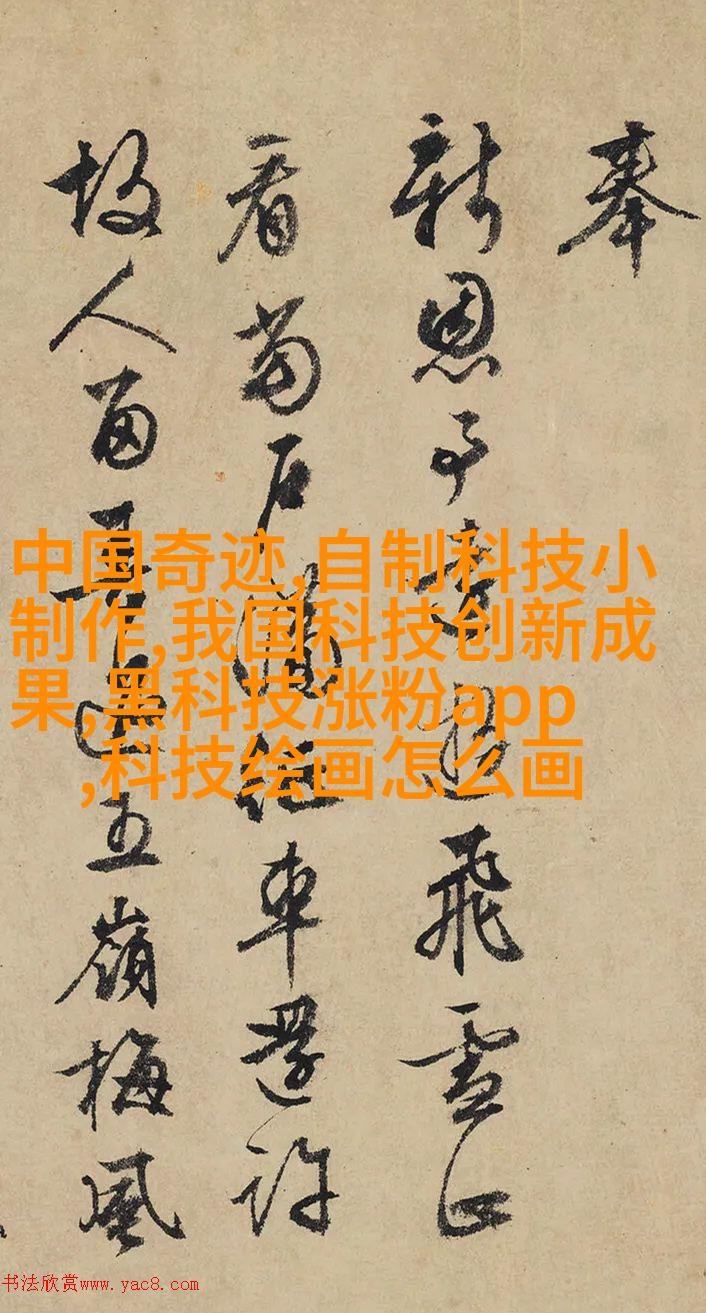 奉
新恩飛雪正
看征車還許
故人留五嶺梅風
中国奇迹,自制科技小
制作,我国科技创新成
果,黑科技涨粉app
,科技绘画怎么画
书法欣赏www.yac8.com